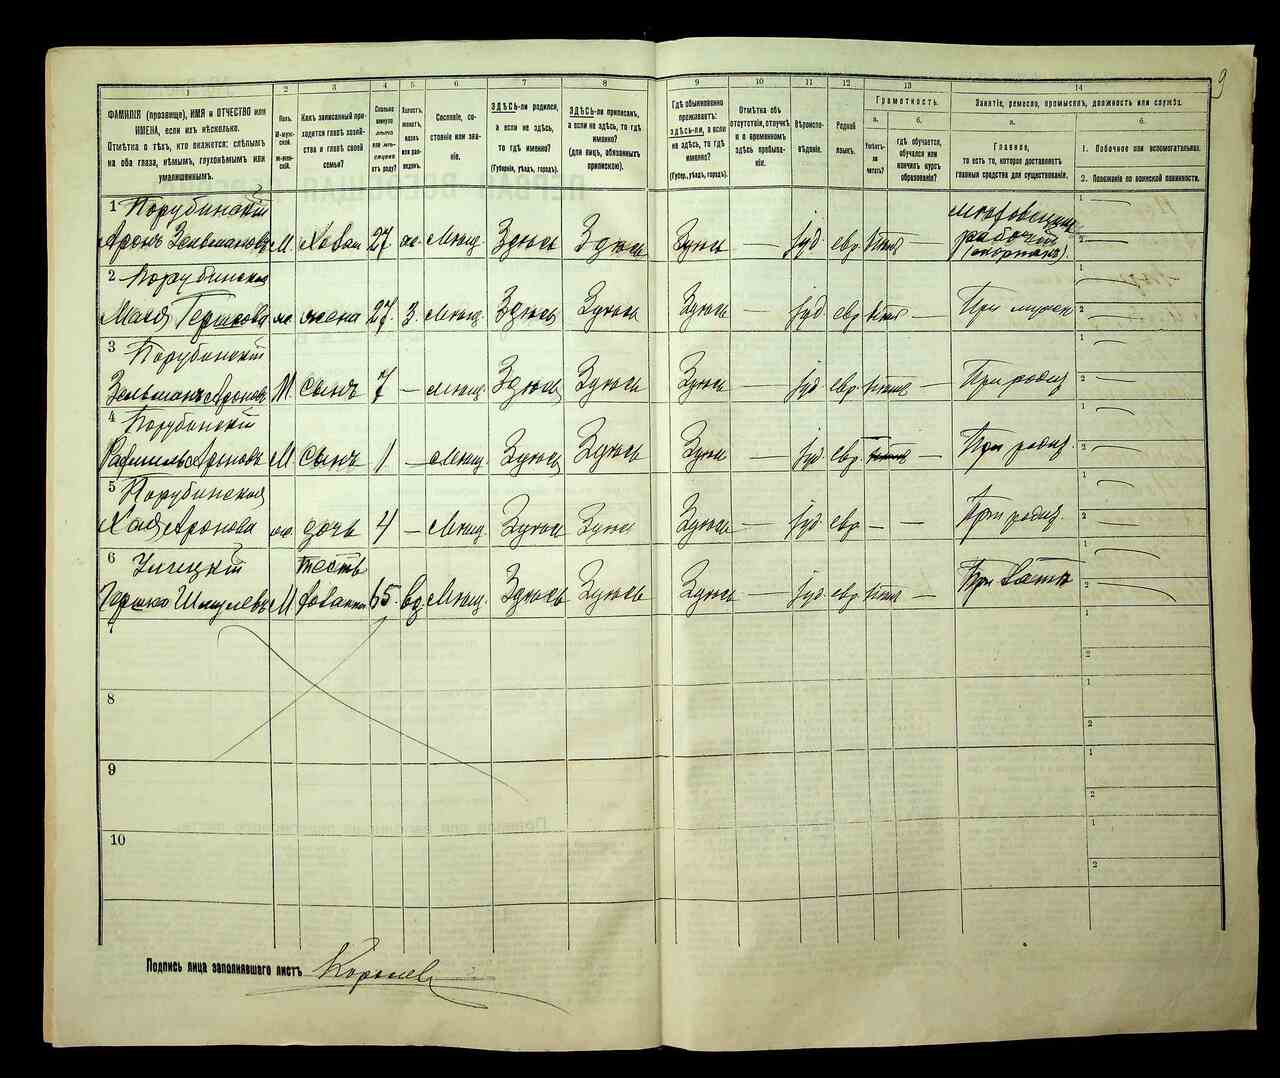 9
1 2 3 4 5 6 7 8 9 10 11 12 13 14
ФАМИЛІЯ (прозвище), ИМЯ и ОТЧЕСТВО или ИМЕНА, если ихъ нѣсколько.
Отмѣтка о тѣхъ, кто окажется: слѣпымъ на оба глаза, нѣмымъ, глухонѣмымъ или умалишеннымъ.
Полъ.
М-мужской.
Ж-женскій.
Какъ записанный приходится главѣ хозяйства и главѣ своей семьи?
Сколько минуло лѣтъ или мѣсяцевъ отъ роду?
Холостъ, женатъ, вдовъ или разведенъ.
Сословіе, состояніе или званіе.
ЗДѢСЬ-ли родился, а если не здѣсь, то гдѣ именно?
(Губернія, уѣздъ, городъ).
ЗДѢСЬ-ли приписанъ, а если не здѣсь, то гдѣ именно?
(для лицъ, обязанныхъ припискою).
Гдѣ обыкновенно проживаетъ: здѣсь-ли, а если не здѣсь, то гдѣ именно?
(Губер., уѣздъ, городъ).
Отмѣтка объ отсутствіи, отлучкѣ и о временномъ здѣсь пребываніи.
Вѣроисповѣданіе.
Родной языкъ.
Грамотность.
а.
Умѣетъ-ли читать?
б.
гдѣ обучается, обучался или кончилъ курсъ образованія?
Занятіе, ремесло, промыселъ, должность или служба.
а.
Главное,
то есть то, которое доставляетъ главныя средства для существованія.
б.
1. Побочное или вспомогательное.
2. Положеніе по воинской повинности.
1 Порубинскій
Аронъ Зельмановъ М. Хозяи 27 ж. Мѣщ. Здѣсь Здѣсь Здѣсь — іуд. евр.
рабочій
2 Порубинская
Гершкова ж. жена 27. З. Мѣщ. Здѣсь Здѣсь Здѣсь — іуд. евр. — При мужѣ
3 Порубинскій
Зельманъ Ароновъ М. сынъ 7 — Мѣщ. Здѣсь Здѣсь Здѣсь — іуд. евр. — При родит.
4 Порубинскій
Ароновъ М сынъ 1 — Мѣщ. Здѣсь Здѣсь Здѣсь — іуд. евр. — При родит.
5 Порубинская
Хая Аронова ж. дочь 4 — Мѣщ. Здѣсь Здѣсь Здѣсь — іуд. евр. — — При родит.
6 тесть
Гершко Шмулевъ М 65. вд. Мѣщ. Здѣсь Здѣсь Здѣсь — іуд. евр. — При зять
7
8
9
10
Подпись лица заполнявшаго листъ